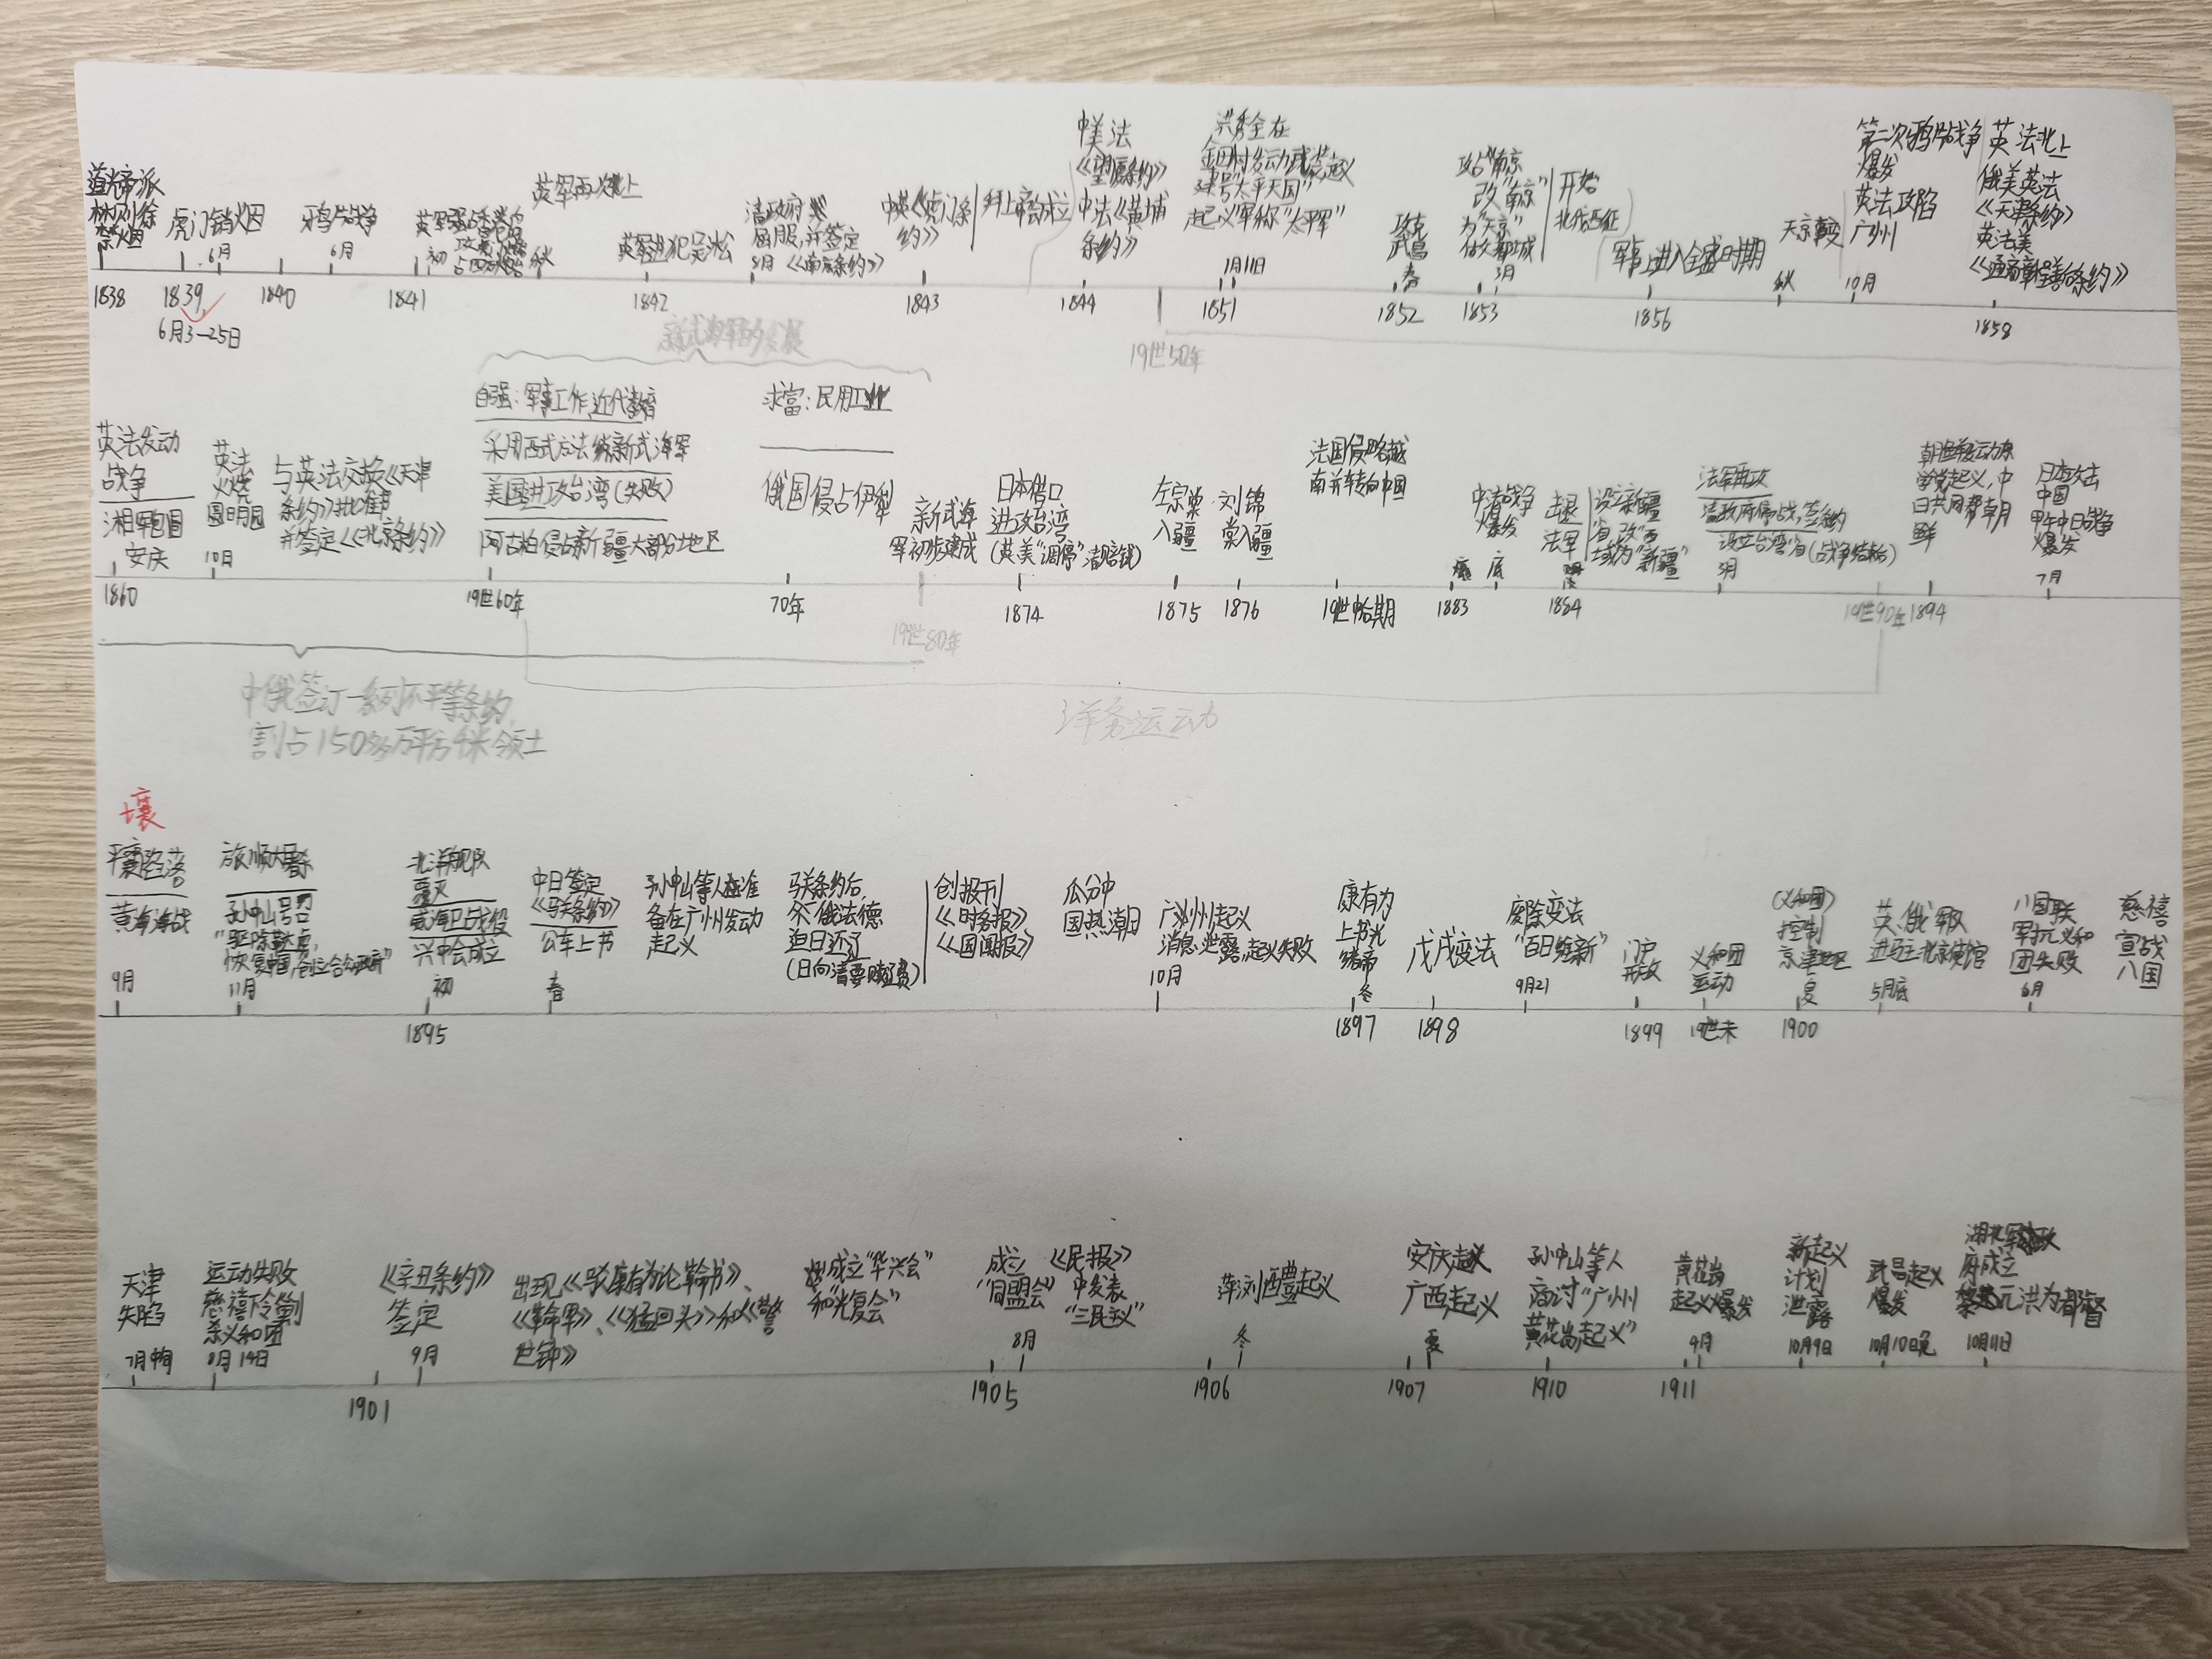 道光帝派
林则徐
禁烟
1838
虎门销烟
6月
1839
6月3—25日
鸦片战争
6月
1840
1841
初
英军再次北上
秋
英军进犯吴淞
1842
清政府
屈服,并签定
8月《南京条约》
中英《虎门条
约》
1843
拜上帝会成立
中美法
《望厦条约》
中法《黄埔
条约》
1844
洪秀全在
金田村发动武装起义
建号"太平天国"
起义军称"太平军"
1月11日
1851
攻克
武昌
春
1852
攻占"南京"
改"南京"
为"天京"
做都城
3月
1853
开始
北伐西征
军事上进入全盛时期
1856
天京事变
秋
第二次鸦片战争
爆发
英法攻陷
广州
10月
英法北上
俄美英法
《天津条约》
英法美
《通商章程善后条约》
1858
19世50年
新式海军的发展
英法发动
战争
湘军包围
安庆
1860
英法
火烧
圆明园
10月
与英法交换《天津
条约》批准书
并签定《北京条约》
自强:军事工作,近代教育
采用西式方法练新式海军
美国进攻台湾(失败)
阿古柏侵占新疆大部分地区
19世60年
求富:民用工业
俄国侵占伊犁
70年
新式海
军初步建成
19世80年
日本借口
进攻台湾
(英美"调停"清赔钱)
1874
左宗棠
入疆
1875
刘锦
棠入疆
1876
法国侵略越
南并转向中国
中法战争
爆发
底
1883
击退
法军
1884
设立新疆
省,改"西
域为"新疆"
法军再攻
清政府停战,签条约
设立台湾省(战争结束)
3月
19世90年
学党起义,中
日共同帮朝
鲜
1894
日本攻击
中国
甲午中日战争
爆发
7月
中俄签订一系列不平等条约,
割占150多万平方千米领土
洋务运动
壤
平壤陷落
黄海海战
9月
旅顺大屠杀
孙中山号召
"驱除鞑虏,
恢复中国,创立合众政府"
11月
北洋舰队
覆灭
威海卫战役
兴中会成立
初
1895
中日签定
《马关条约》
公车上书
春
孙中山等人准
备在广州发动
起义
马关条约后,
俄法德
迫日还辽
(日向清要赎辽费)
创报刊
《时务报》
《国闻报》
瓜分中
国热潮
广州起义
消息泄露,起义失败
10月
康有为
上书光
绪帝
冬
1897
戊戌变法
1898
废除变法
"百日维新"
9月21
门户
开放
1899
义和团
运动
19世末
(义和团)
控制
京津地区
夏
1900
英、俄军队
进驻北京使馆
5月底
八国联
军抗义和
团失败
6月
慈禧
宣战
八国
天津
失陷
7月中旬
运动失败
慈禧下令剿
杀义和团
8月14日
1901
《辛丑条约》
签定
9月
出现《驳康有为论革命书》、
《革命军》、《猛回头》和《警
世钟》
成立"华兴会"
和"光复会"
成立
"同盟会"
8月
1905
《民报》
中发表
"三民主义"
萍浏醴起义
冬
1906
安庆起义
广西起义
夏
1907
孙中山等人
商讨"广州
黄花岗起义"
1910
黄花岗
起义爆发
4月
1911
新起义
计划
泄露
10月9日
武昌起义
爆发
10月10日晚
湖北军政
府成立
黎元洪为都督
10月11日